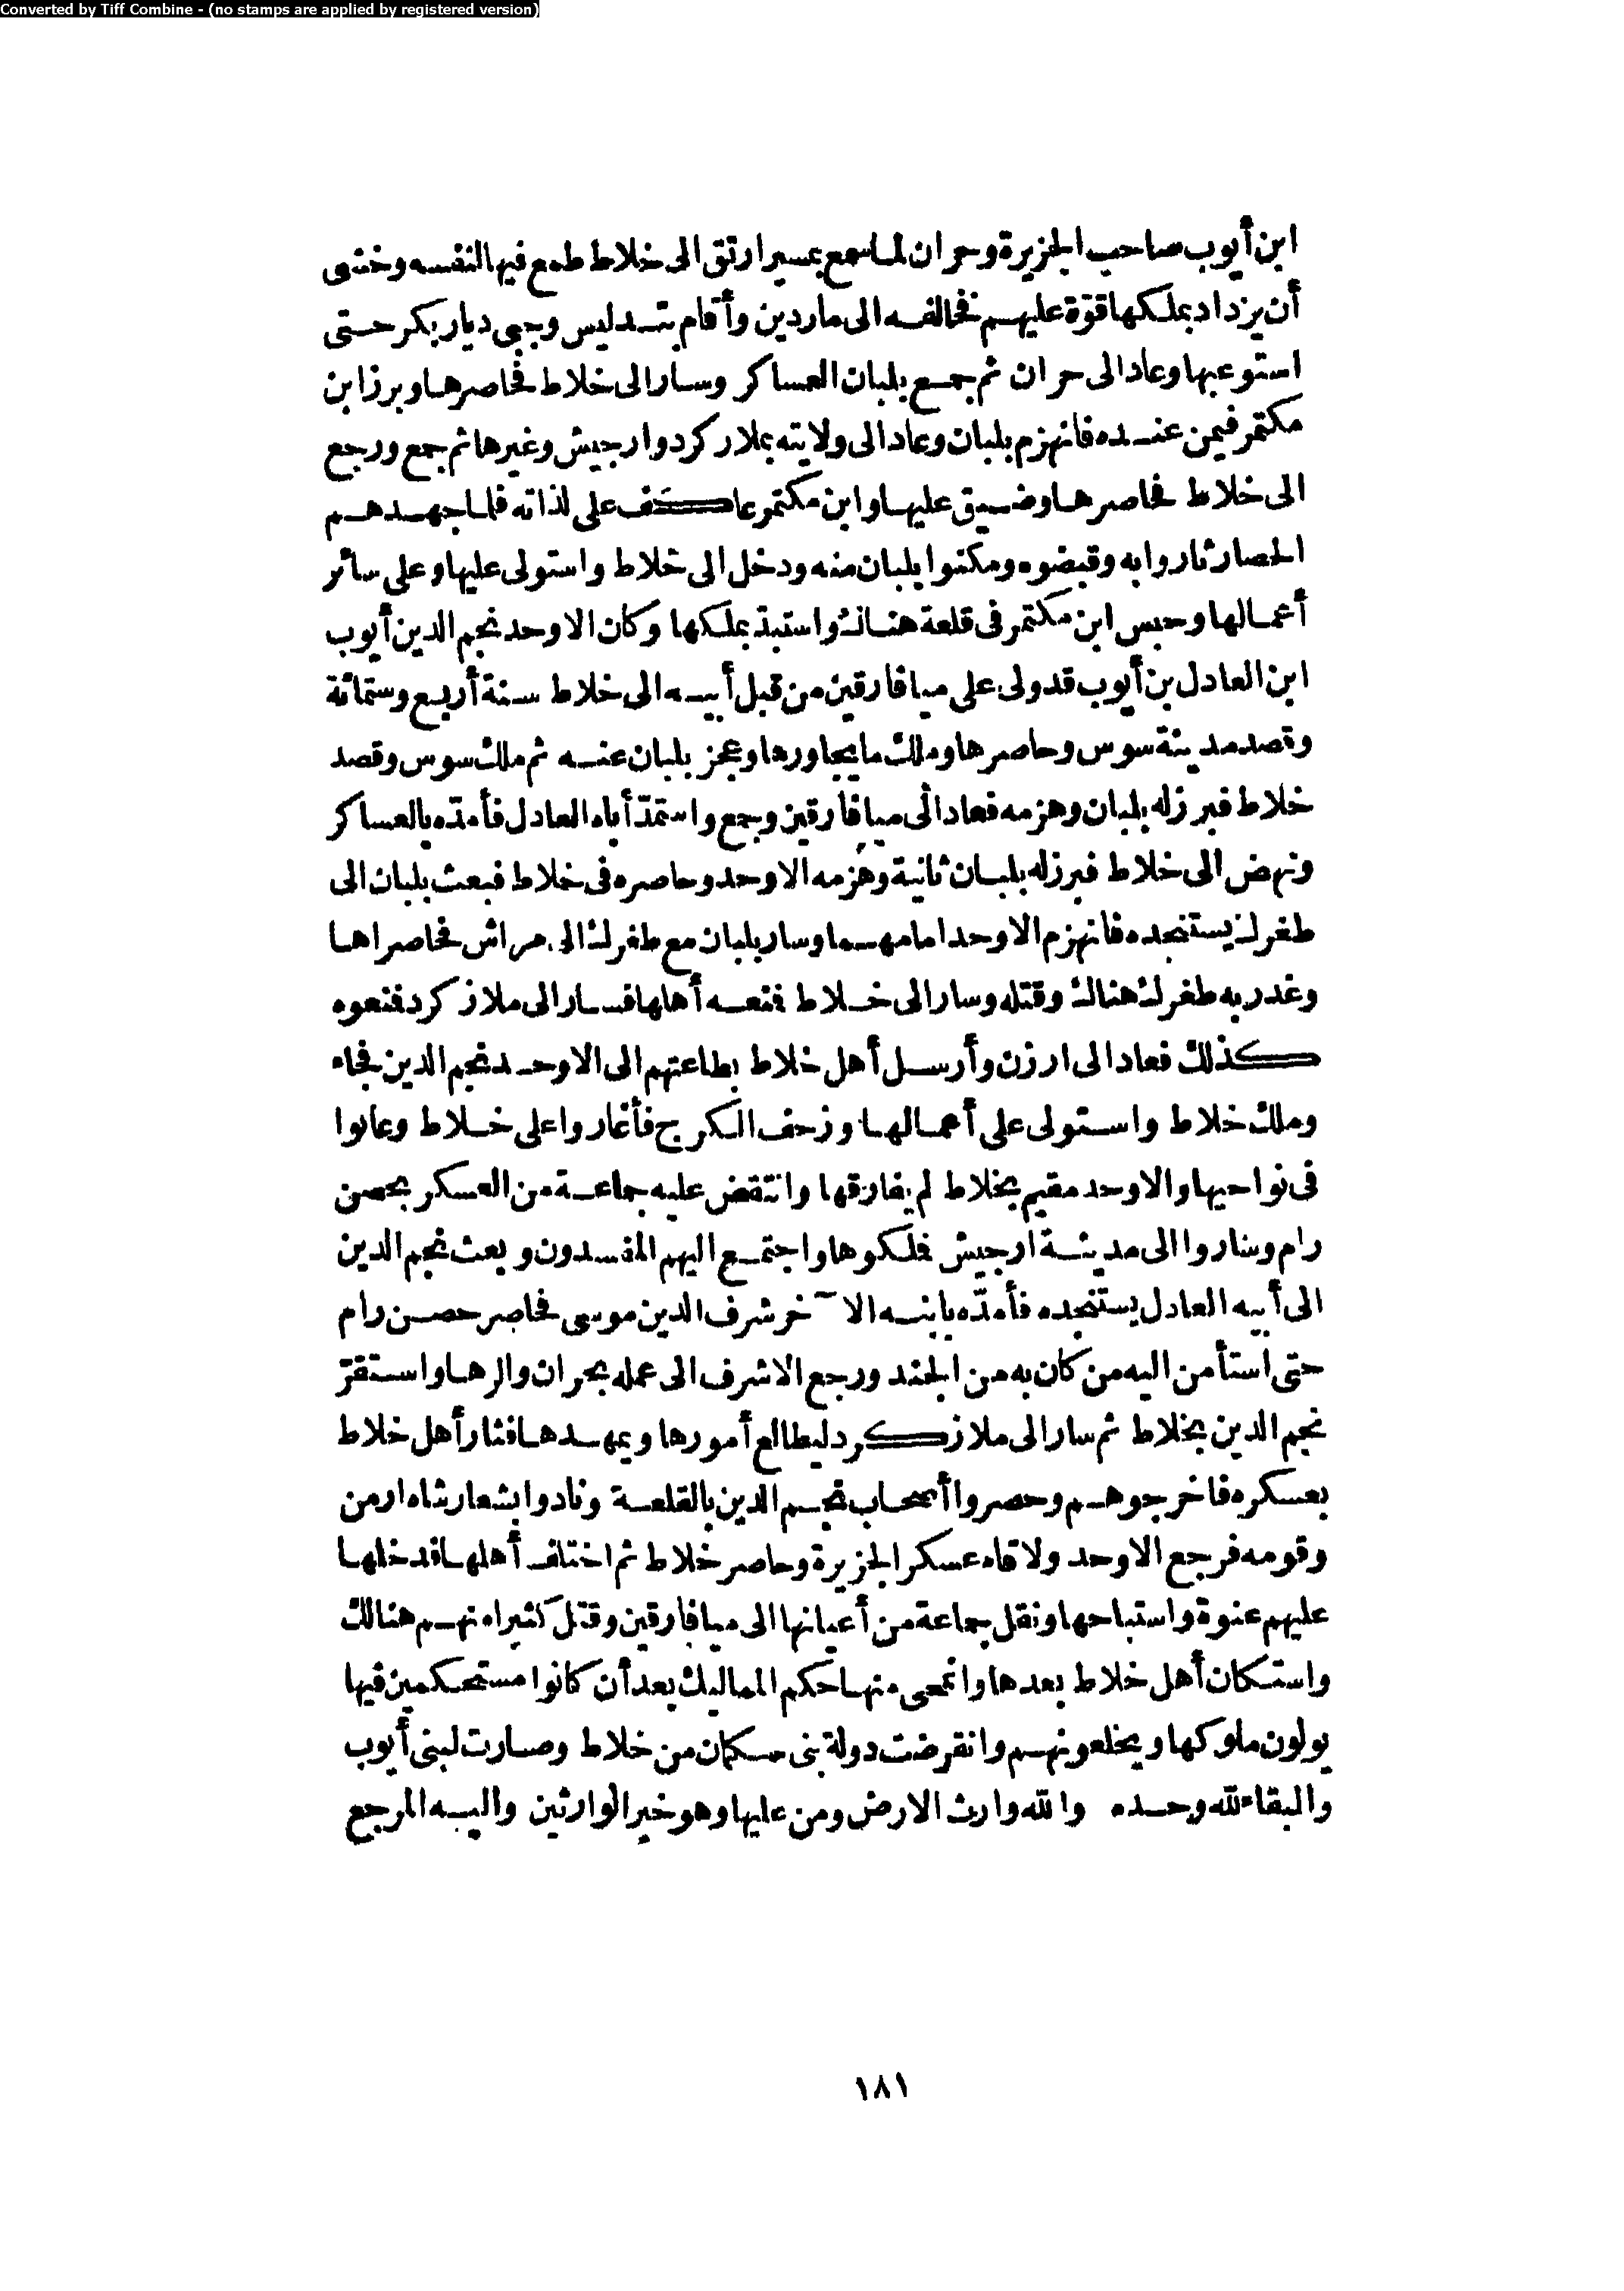 Converted by Tiff Combine - (no stamps are applied by registered version)
ابن أيوب صاحب الجزيرة وحران لما سمع بمسير ارتق الى خلاط طمع فيها لنفسه وخشى
أن يزداد بملكها قوّة عليهم فخالفه الى ماردين وأقام بتدليس وجبى ديار بكر حتى
استوعبها وعاد الى حران ثم جمع بلبان العساكر وسار الى خلاط فحاصرها وبرز ابن
مكتمر فيمن عنده فانهزم بلبان وعاد الى ولايته بملاركرد وارجيش وغيرها ثم جمع ورجع
الى خلاط فحاصرها وضيق عليها وابن مكتمر عاكف على لذاته فلما جهدهم
الحصار ثاروا به وقبضوه ومكنوا بلبان منه ودخل الى خلاط واستولى عليها وعلى سائر
أعمالها وحبس ابن مكتمر فى قلعة هناك واستبدّ بملكها وكان الاوحد نجم الدين أيوب
ابن العادل بن أيوب قد ولى على ميافارقين من قبل أبيه الى خلاط سنة أربع وستمائة
وقصد مدينة سوس وحاصرها وملك ما يجاورها وعجز بلبان عنه ثم ملك سوس وقصد
خلاط فبرز له بلبان وهزمه فعاد الى ميافارقين وجمع واستمدّ أباه العادل فأمدّه بالعساكر
ونهض الى خلاط فبرز له بلبان ثانية وهزمه الاوحد وحاصره فى خلاط فبعث بلبان الى
طغرك يستنجده فانهزم الاوحد امامهما وسار بلبان مع طغرلك الى مراش فحاصراها
وغدر به طغرلك هنالك وقتله وسار الى خلاط فمنعه أهلها فسار الى ملازكرد فمنعوه
كذلك فعاد الى ارزن وأرسل أهل خلاط بطاعتهم الى الاوحد نجم الدين فجاء
وملك خلاط واستولى على أعمالها وزحف الكرج فأغاروا على خلاط وعاثوا
فى نواحيها والاوحد مقيم بخلاط لم يفارقها وانتقض عليه جماعة من العسكر بحصن
رام وساروا الى مدينة ارجيش فملكوها واجتمع اليهم المفسدون وبعث نجم الدين
الى أبيه العادل يستنجده فأمدّه بابنه الآخر شرف الدين موسى فحاصر حصن رام
حتى استأمن اليه من كان به من الجند ورجع الاشرف الى عمله بحران والرها واستقرّ
نجم الدين بخلاط ثم سار الى ملازكرد ليطالع أمورها ويمهدها فثار أهل خلاط
بعسكره فاخرجوهم وحصروا أصحاب نجم الدين بالقلعة ونادوا بشعار شاه ارمن
وقومه فرجع الاوحد ولاقاه عسكر الجزيرة وحاصر خلاط ثم اختلف أهلها فدخلها
عليهم عنوة واستباحها ونقل جماعة من أعيانها الى ميافارقين وقتل كثيرا منهم هنالك
واستكان أهل خلاط بعدها وانمحى منها حكم المماليك بعد أن كانوا مستحكمين فيها
يولون ملوكها ويخلعونهم وانقرضت دولة بنى سكمان من خلاط وصارت لبنى أيوب
والبقاء لله وحده والله وارث الارض ومن عليها وهو خير الوارثين واليه المرجع
١٨١